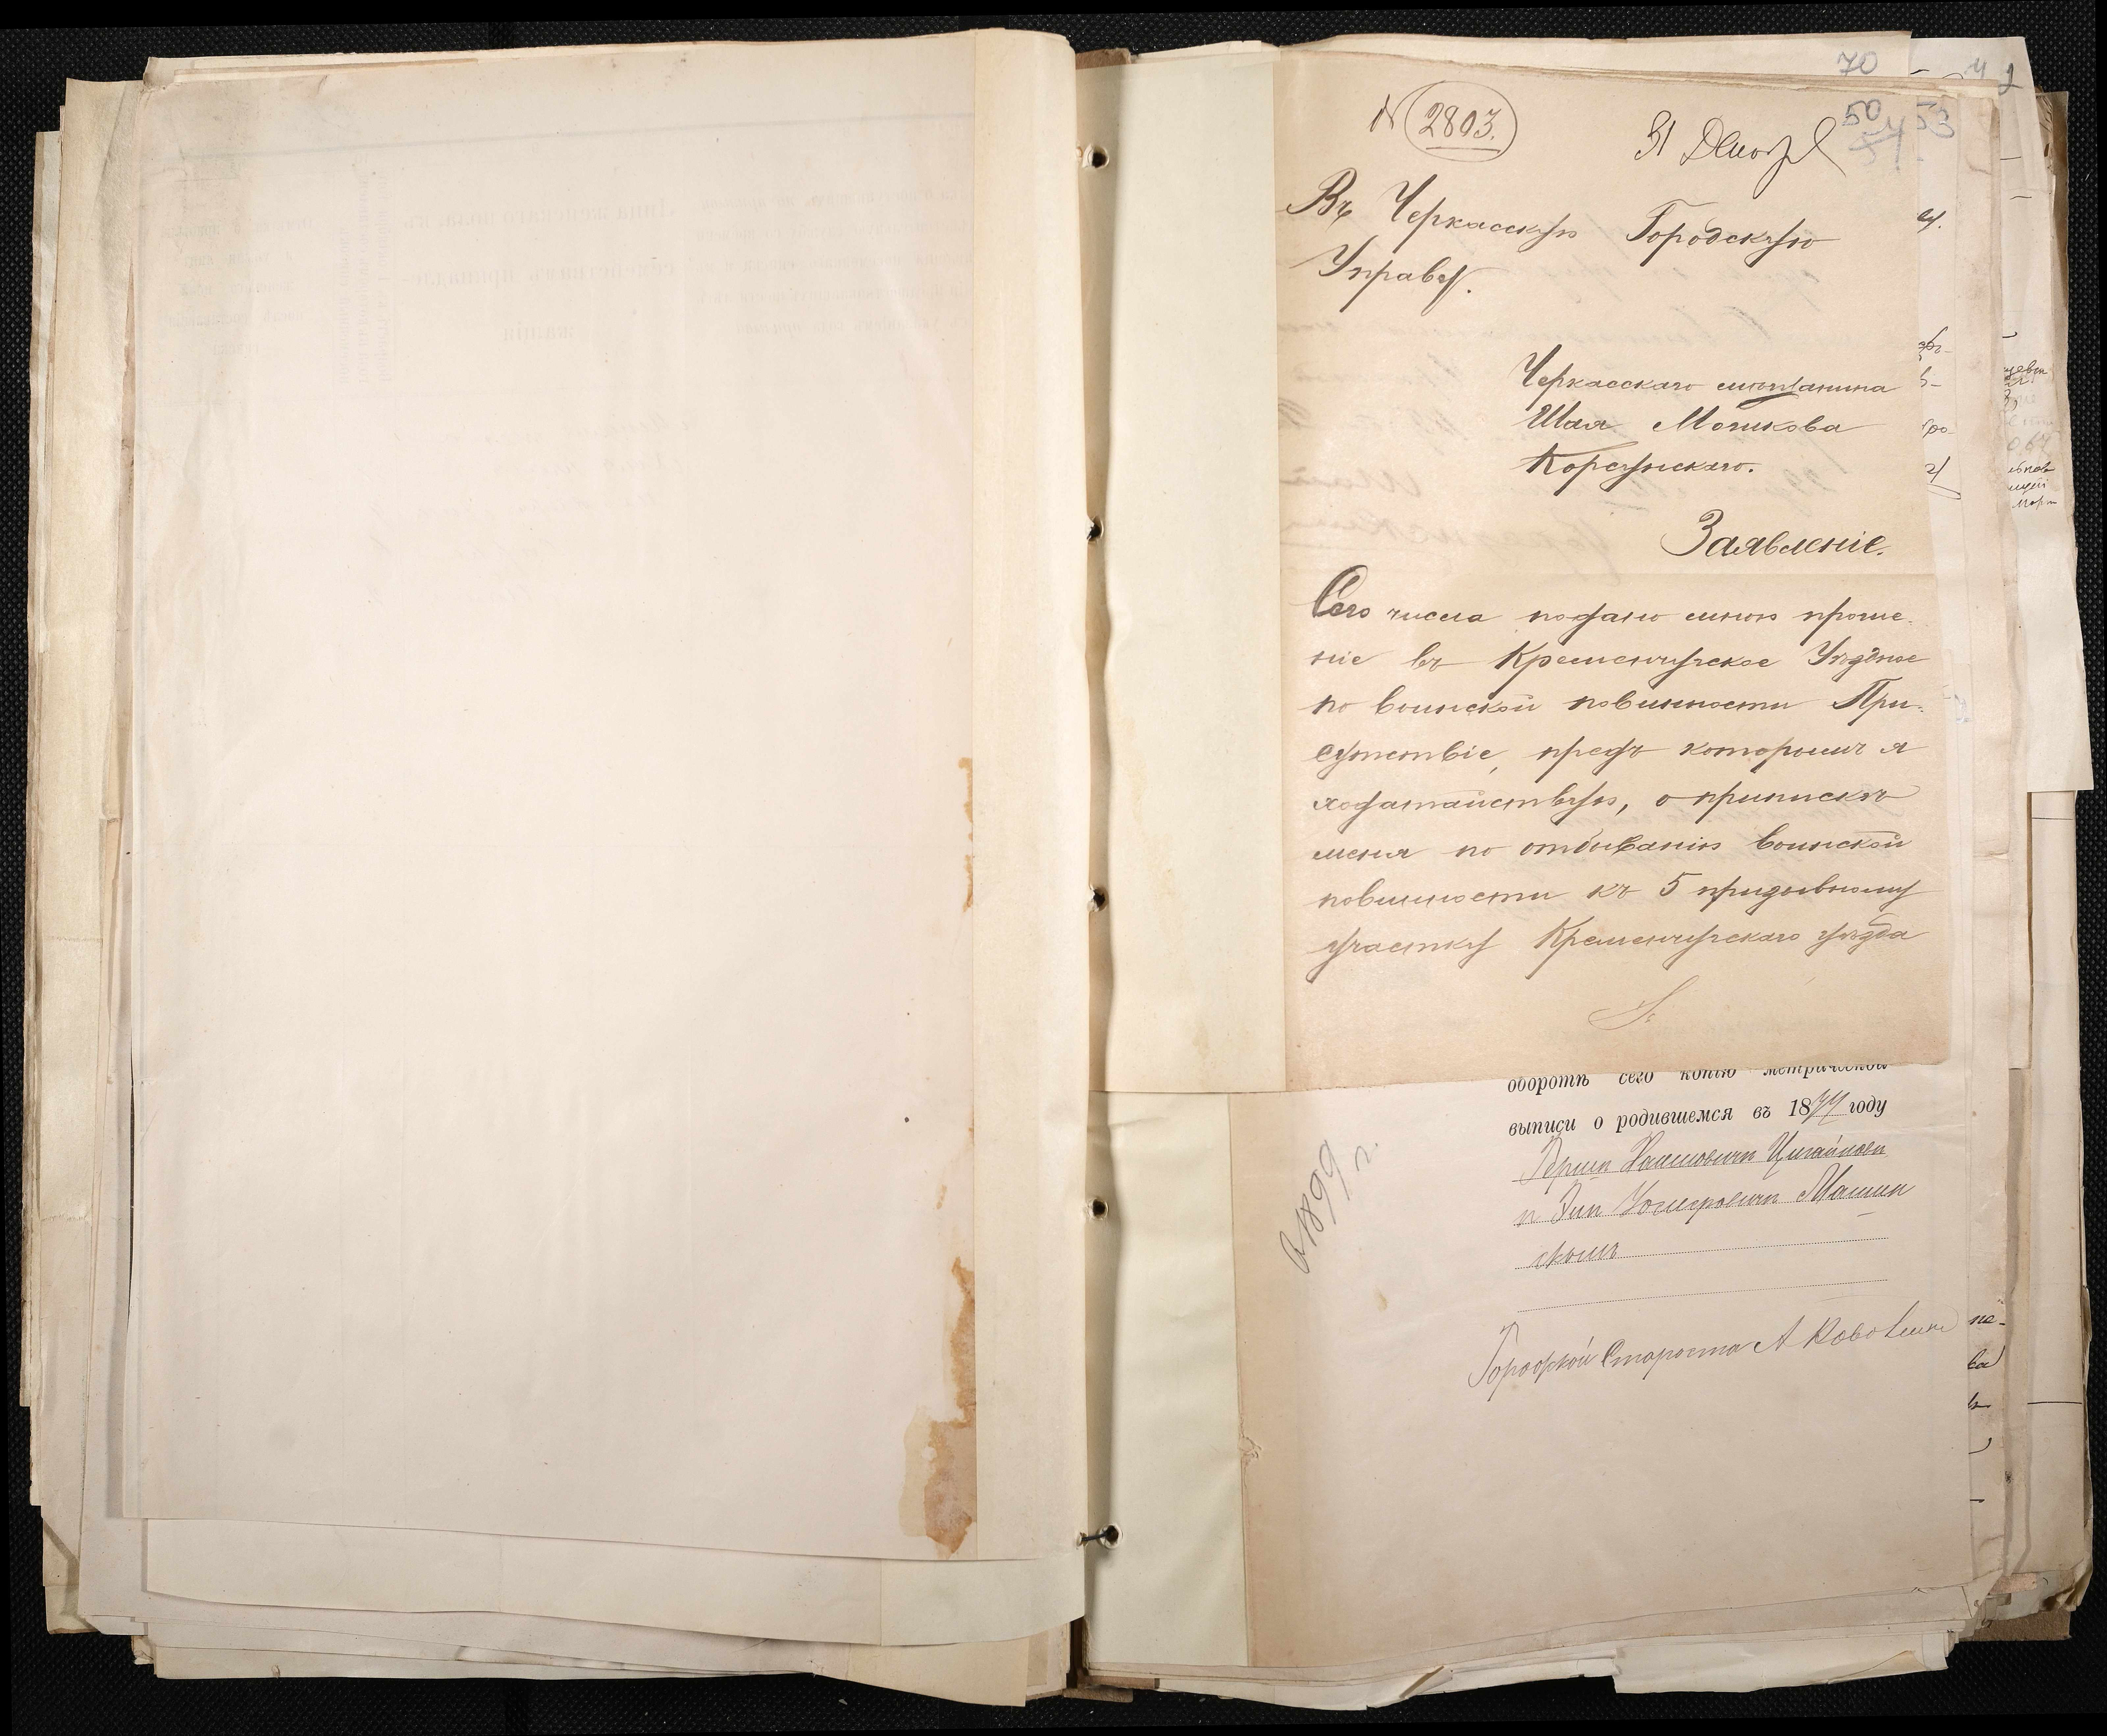 70
50 53
54
N 2803.
31 Декабр
Въ Черкасскую Городскую
Управу.
Черкасскаго мѣщанина
Шая Мошкова
Корсунскаго.
Заявленіе.
Сего числа подано мною проше-
ніе въ Кременчугское Уѣздное
по воинской повинности При-
сутствіе, предъ которымъ я
ходатайствую, о припискѣ
меня по отбыванію воинской
повинности къ 5 призывному
участку Кременчугскаго уѣзда
оборотѣ сего копію метрической
выписи о родившемся въ 1874 году
скомъ
Городской Староста А
1899 г.